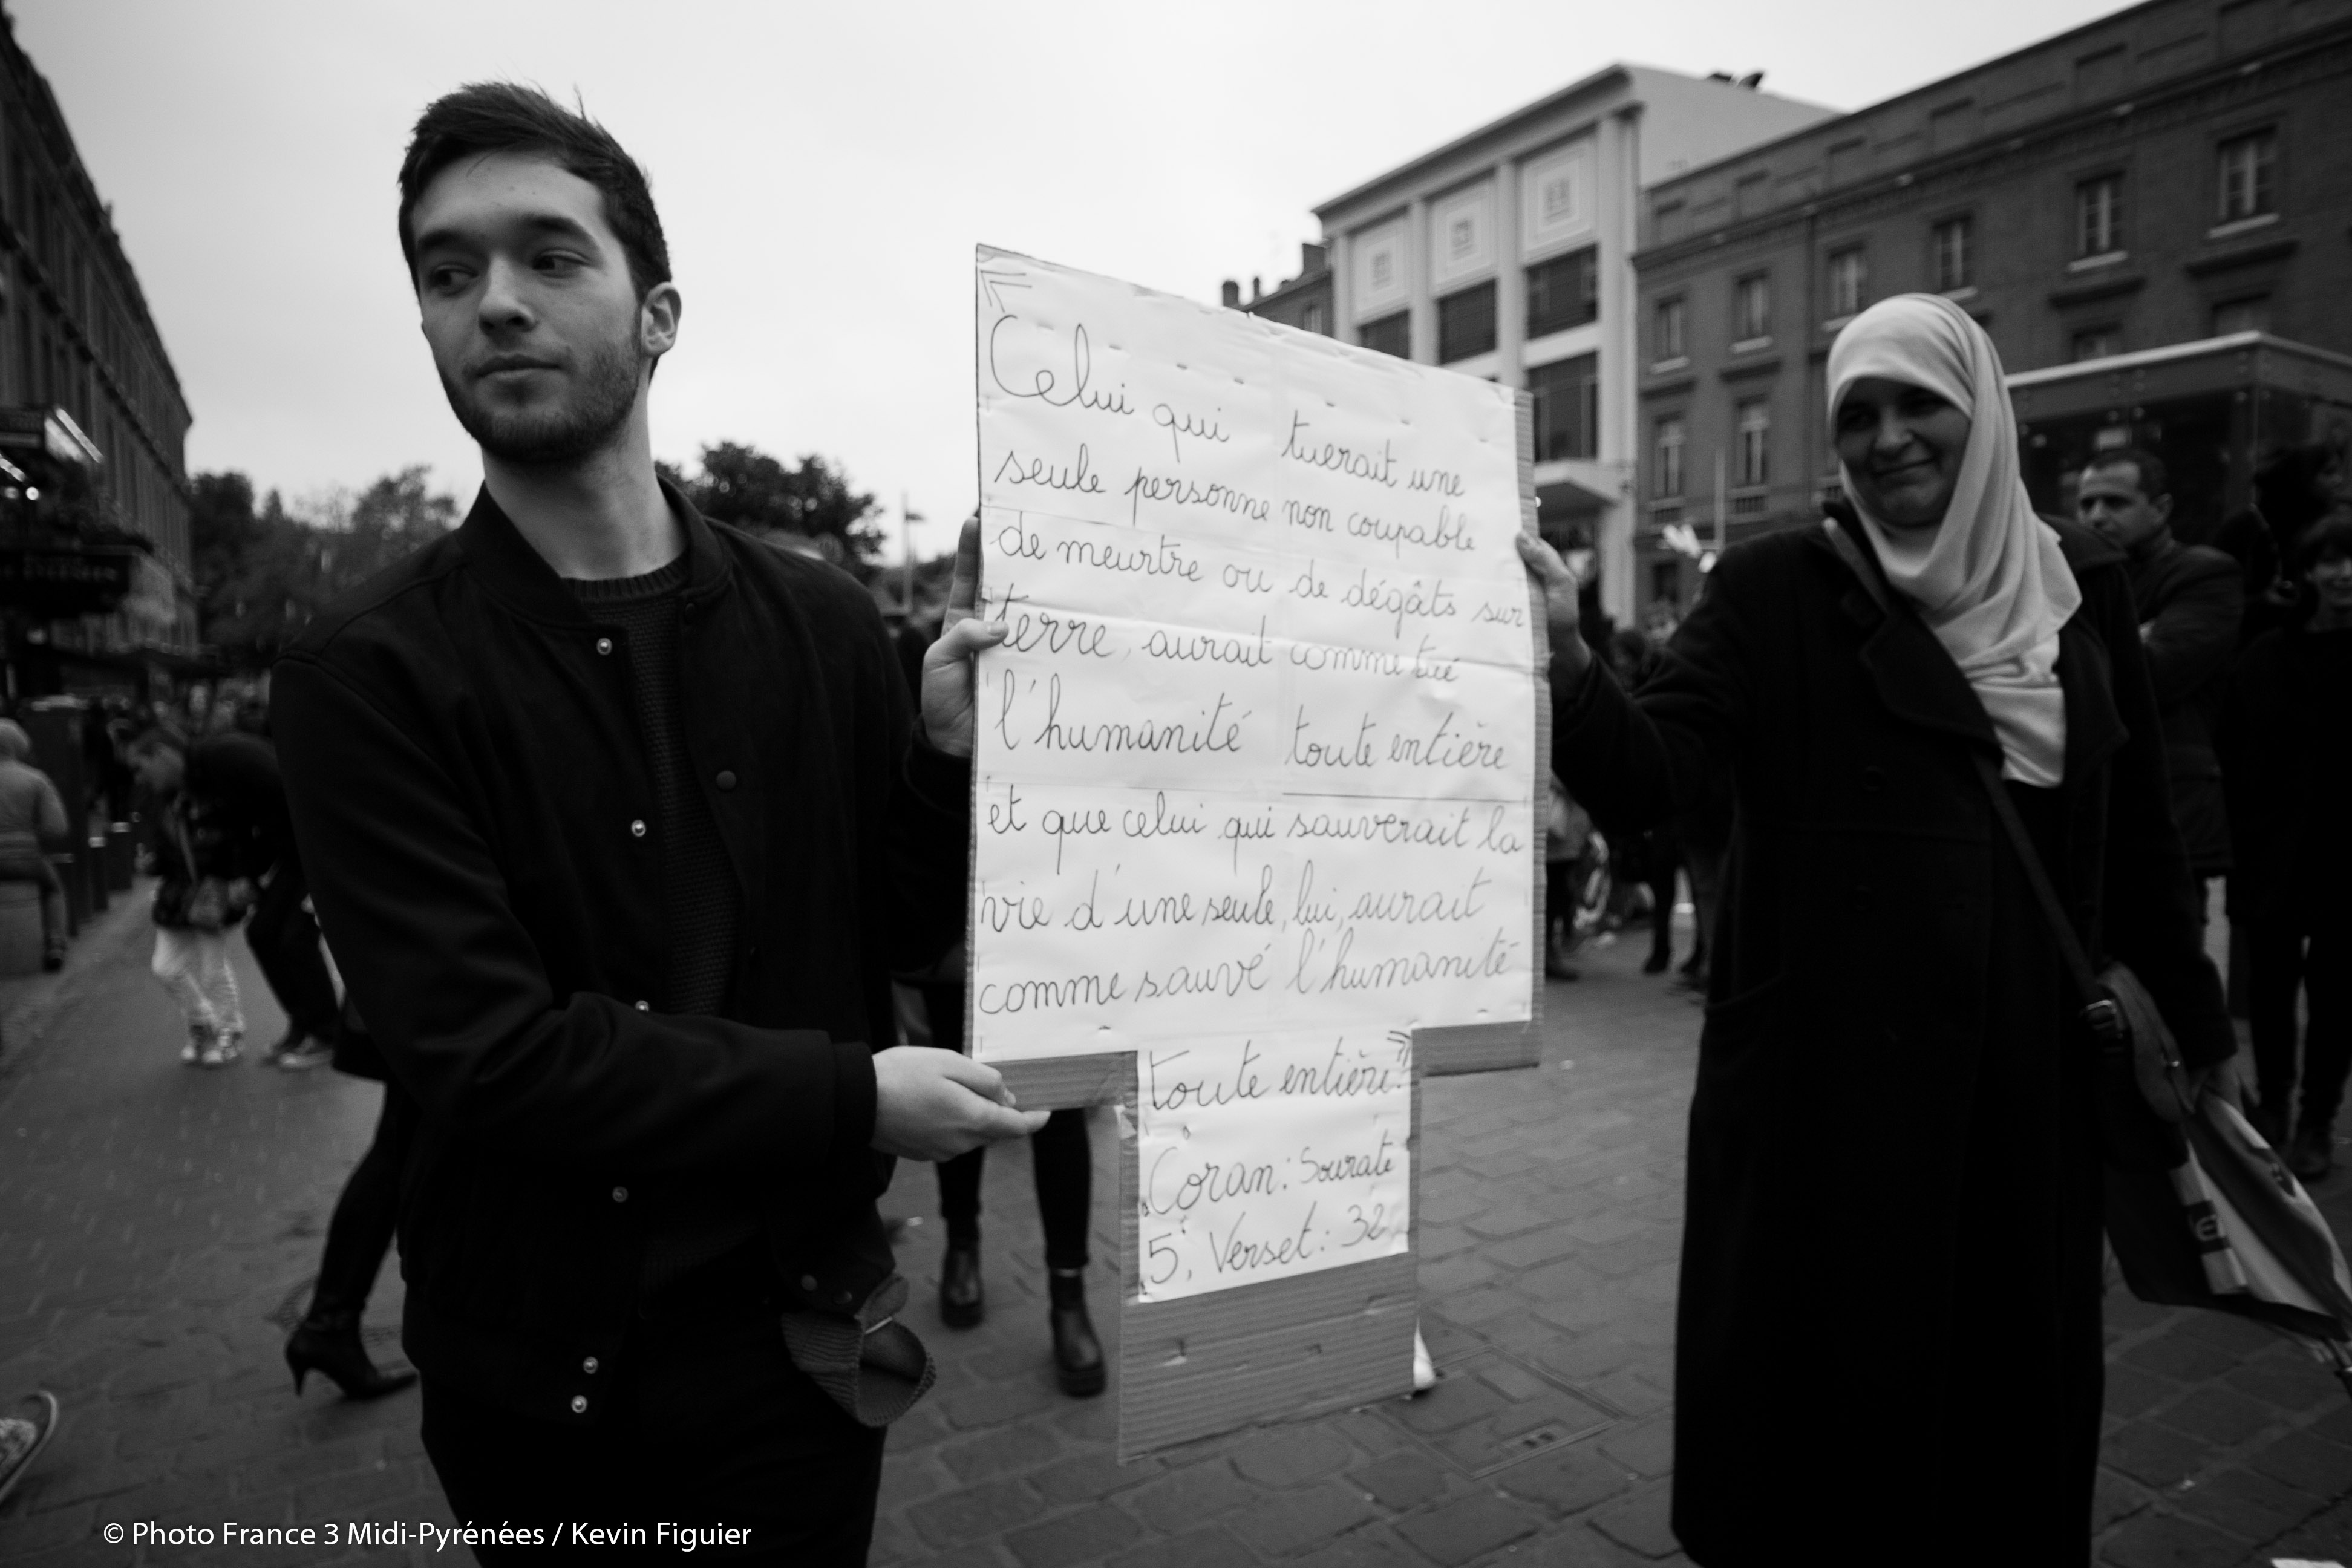 «
Celui qui tuerait une
seule personne non coupable
de meurtre ou de dégâts sur
terre, aurait comme tué
l'humanité toute entière
et que celui qui sauverait la
vie d'une seule, lui, aurait
comme sauvé l'humanité
toute entière. »
Coran: Sourate
5, Verset: 32
© Photo France 3 Midi-Pyrénées / Kevin Figuier